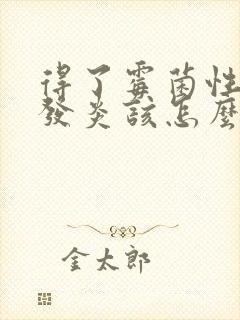 得了霉菌性
發炎該怎麼
金太郎